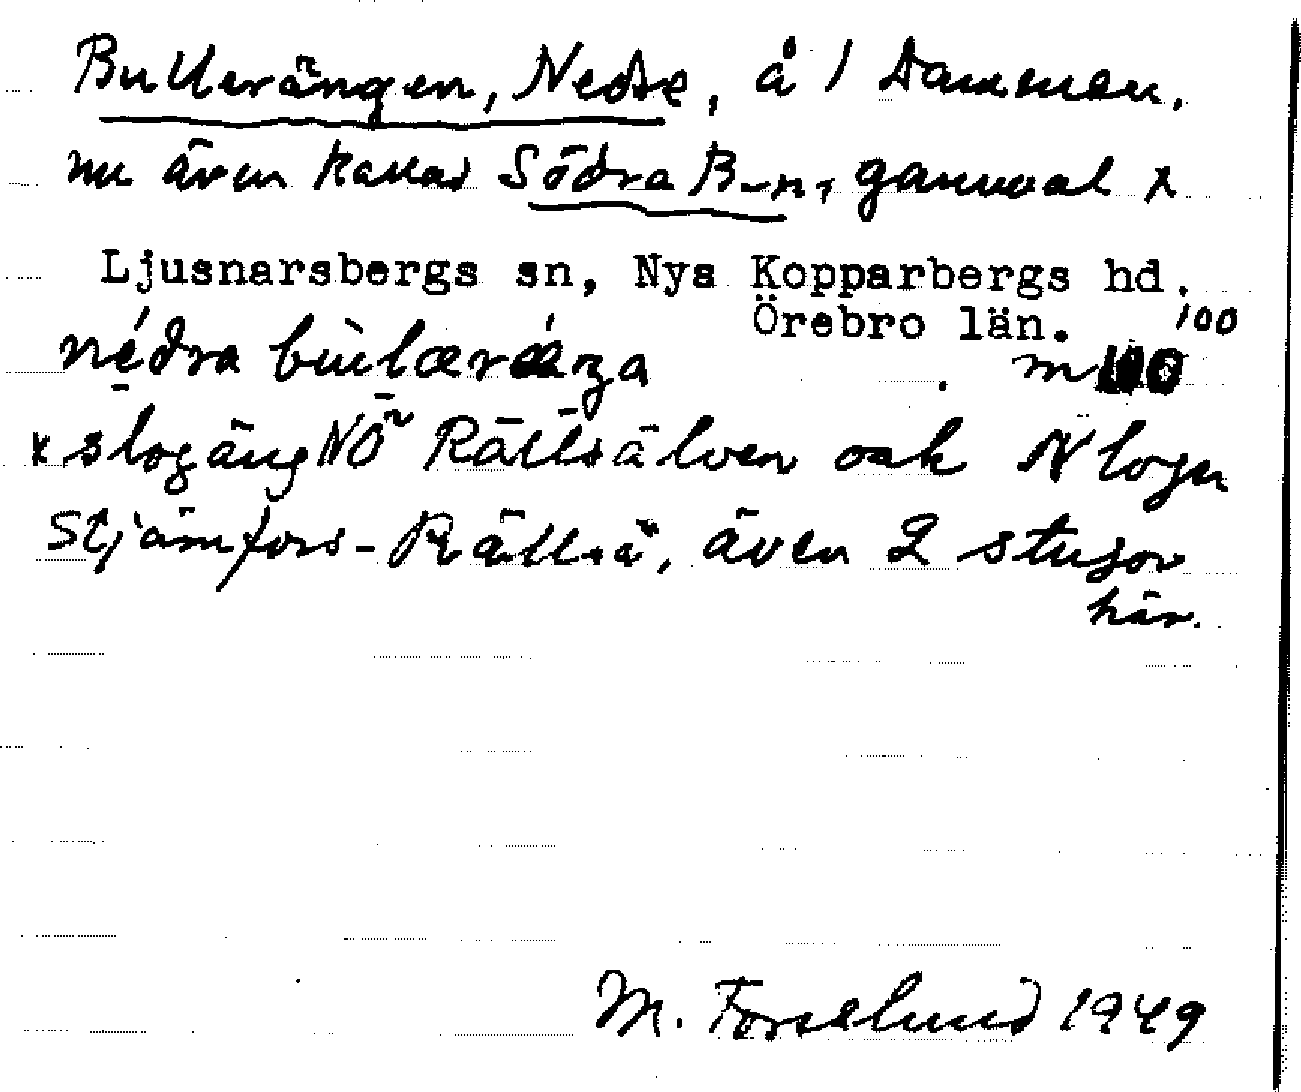 Bullerängen, Nedre, å 1 Dammen,
nu även kallad Södra B-n, gammal x
Ljusnarsbergs sn, Nya Kopparbergs hd.
Örebro län. 100
nédra bùlærǽŋa m
x slogäng NÖ Rällsälven och N logen
Stjärnfors-Rällså, även 2 stugor
här.
M. Forselund 1949